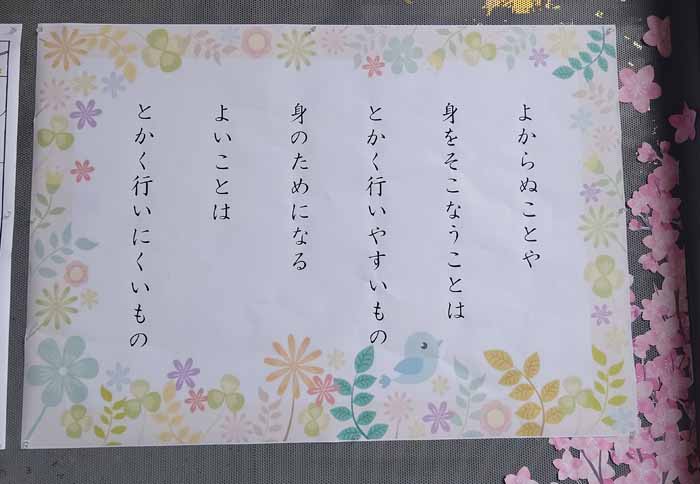 よからぬことや
身をそこなうことは
とかく行いやすいもの
身のためになる
よいことは
とかく行いにくいもの